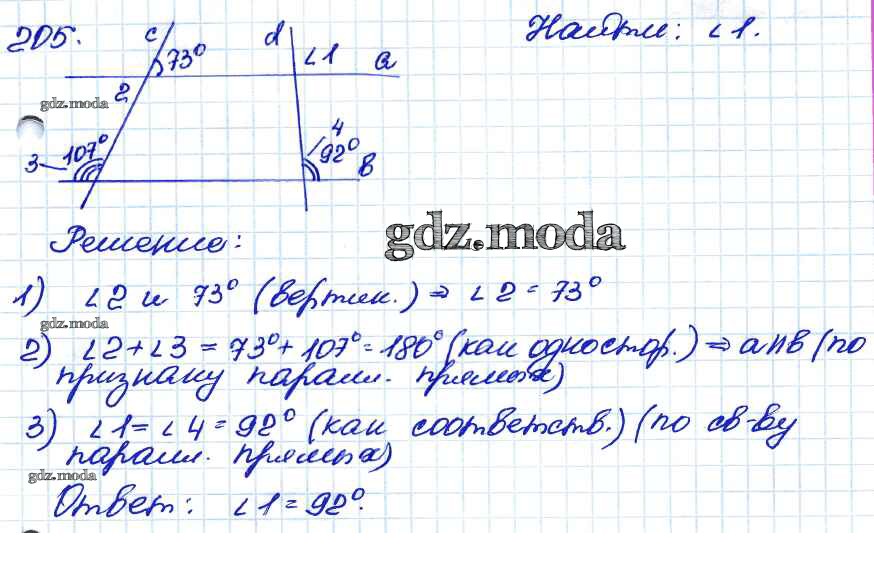 205.
Найти: ∠1.
c
73°
d
∠1
a
2
gdz.moda
3
107°
4
92°
b
Решение:
gdz.moda
1) ∠2 и 73° (вертик.) ⇒ ∠2 = 73°
gdz.moda
2) ∠2+∠3 = 73°+107°=180° (как одностор.) ⇒ a||b (по
признаку паралл. прямых)
3) ∠1=∠4=92° (как соответств.) (по св-ву
паралл. прямых)
gdz.moda
Ответ: ∠1=92°.